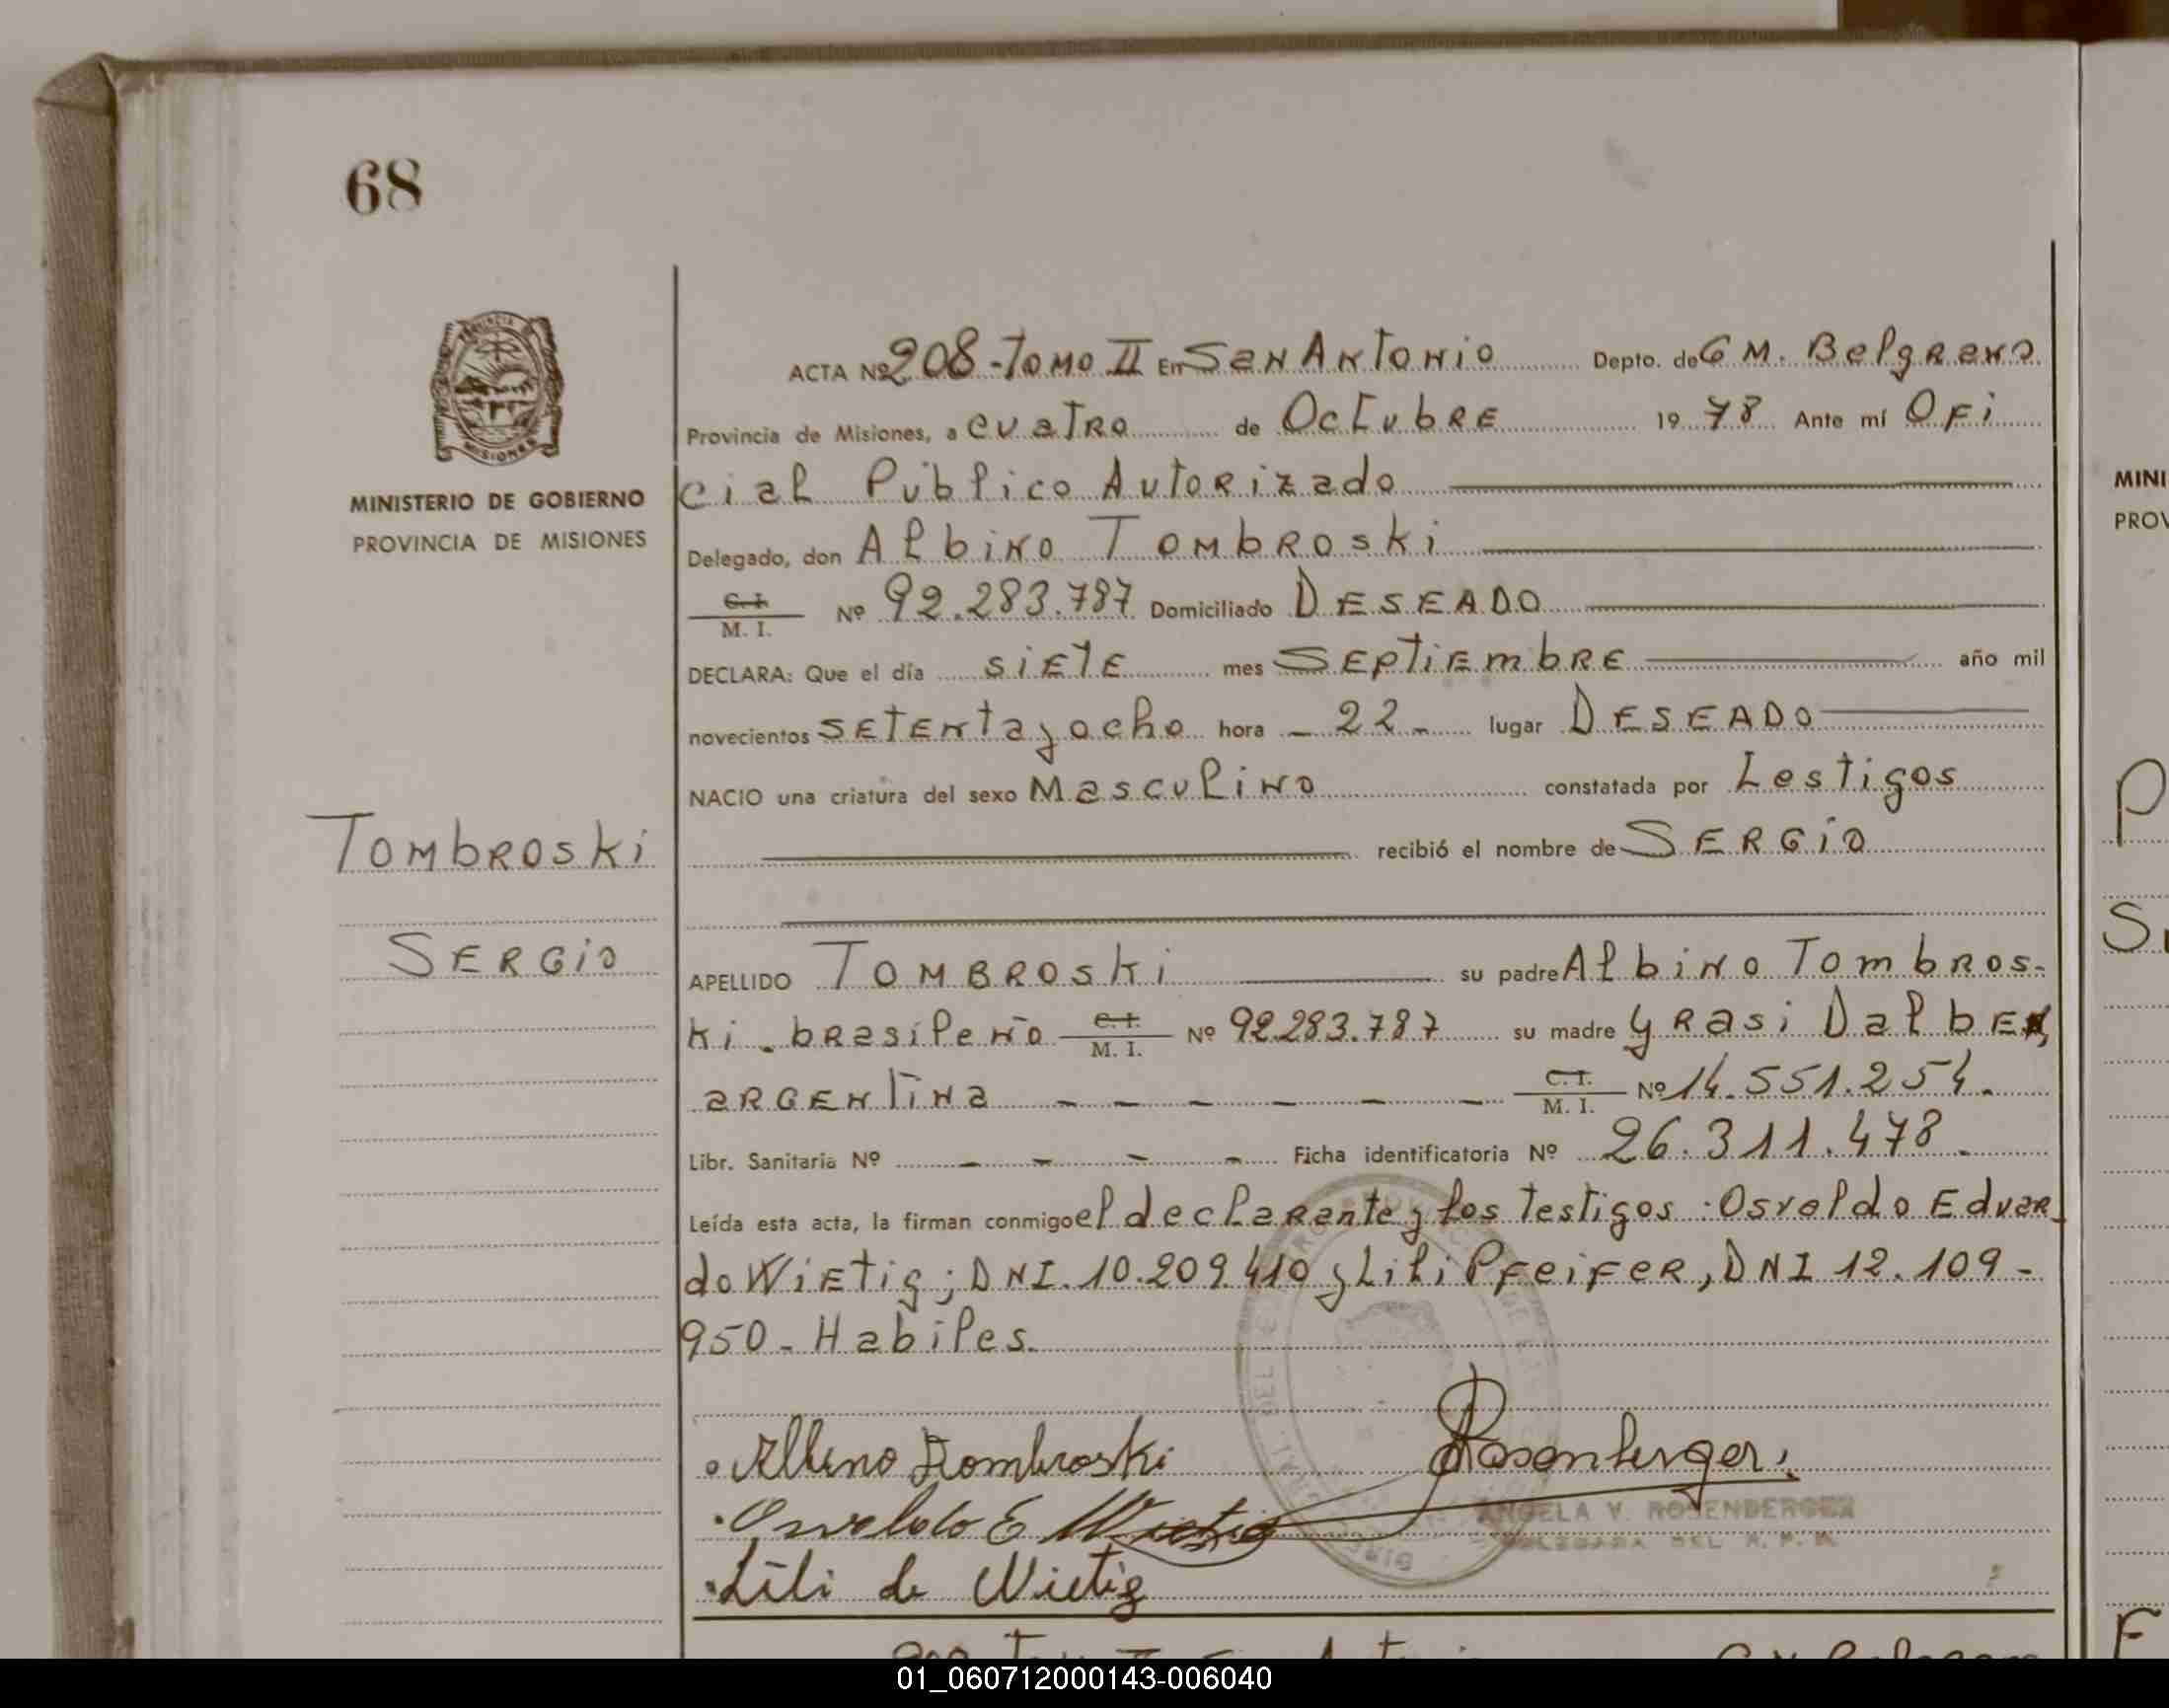 68
MINISTERIO DE GOBIERNO
PROVINCIA DE MISIONES
Tombroski
SERGIO
ACTA Nº 208-Tomo II En San Antonio Depto. de G M. Belgrano
Provincia de Misiones, a cuatro de Octubre 19 78 Ante mí Ofi
cial Público Autorizado
Delegado, don Albino Tombroski
C. I.
M. I. Nº 92.283.787 Domiciliado DESEADO
DECLARA: Que el día siete mes Septiembre año mil
novecientos setenta y ocho hora - 22 - lugar DESEADO
NACIO una criatura del sexo Masculino constatada por testigos
recibió el nombre de SERGIO
APELLIDO TOMBROSKI su padre Albino Tombros-
ki - brasileño C. I. M. I. Nº 92.283.787 su madre Yrasi Dalben,
argentina - - - - - - - C. I. M. I. Nº 14.551.254.
Libr. Sanitaria Nº - - - - Ficha identificatoria Nº 26.311.478.
Leída esta acta, la firman conmigo el declarante y los testigos: Osvaldo Eduar
do Wietig; DNI. 10.209.410 y Lili Pfeifer, DNI 12.109-
950 - Habiles.
Albino Tombroski Rosenberger
Osvaldo E Wietig
ANGELA V. ROSENBERGER
DELEGADA DEL R. P. P.
Lili de Wietig
MINI
PROV
01_060712000143-006040